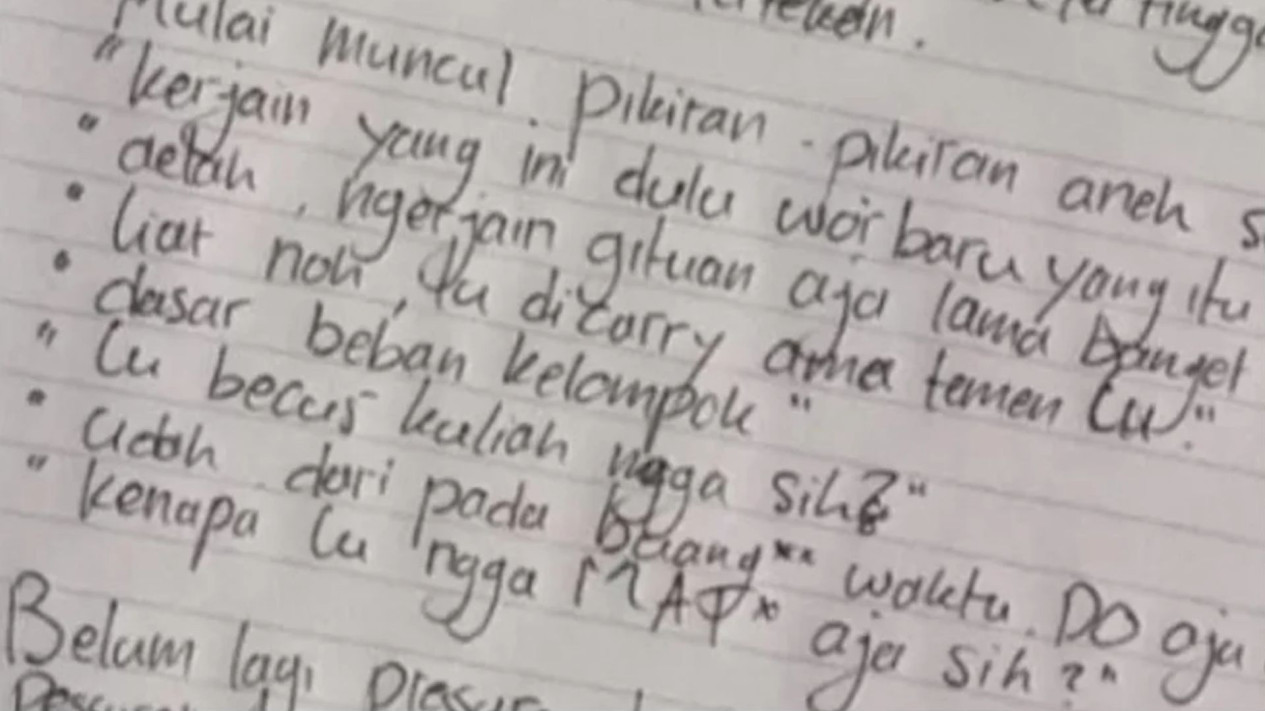 Mulai muncul pikiran-pikiran aneh
"kerjain yang ini dulu woi baru yang itu
"aelah, ngerjain gituan aja lama banget
"liat noh, tu dicarry ama temen lu."
"dasar beban kelompok"
"lu becus kuliah ngga sih?"
"udah dari pada buang** waktu. DO aja
"kenapa lu ngga MAT* aja sih?"
Belum lagi